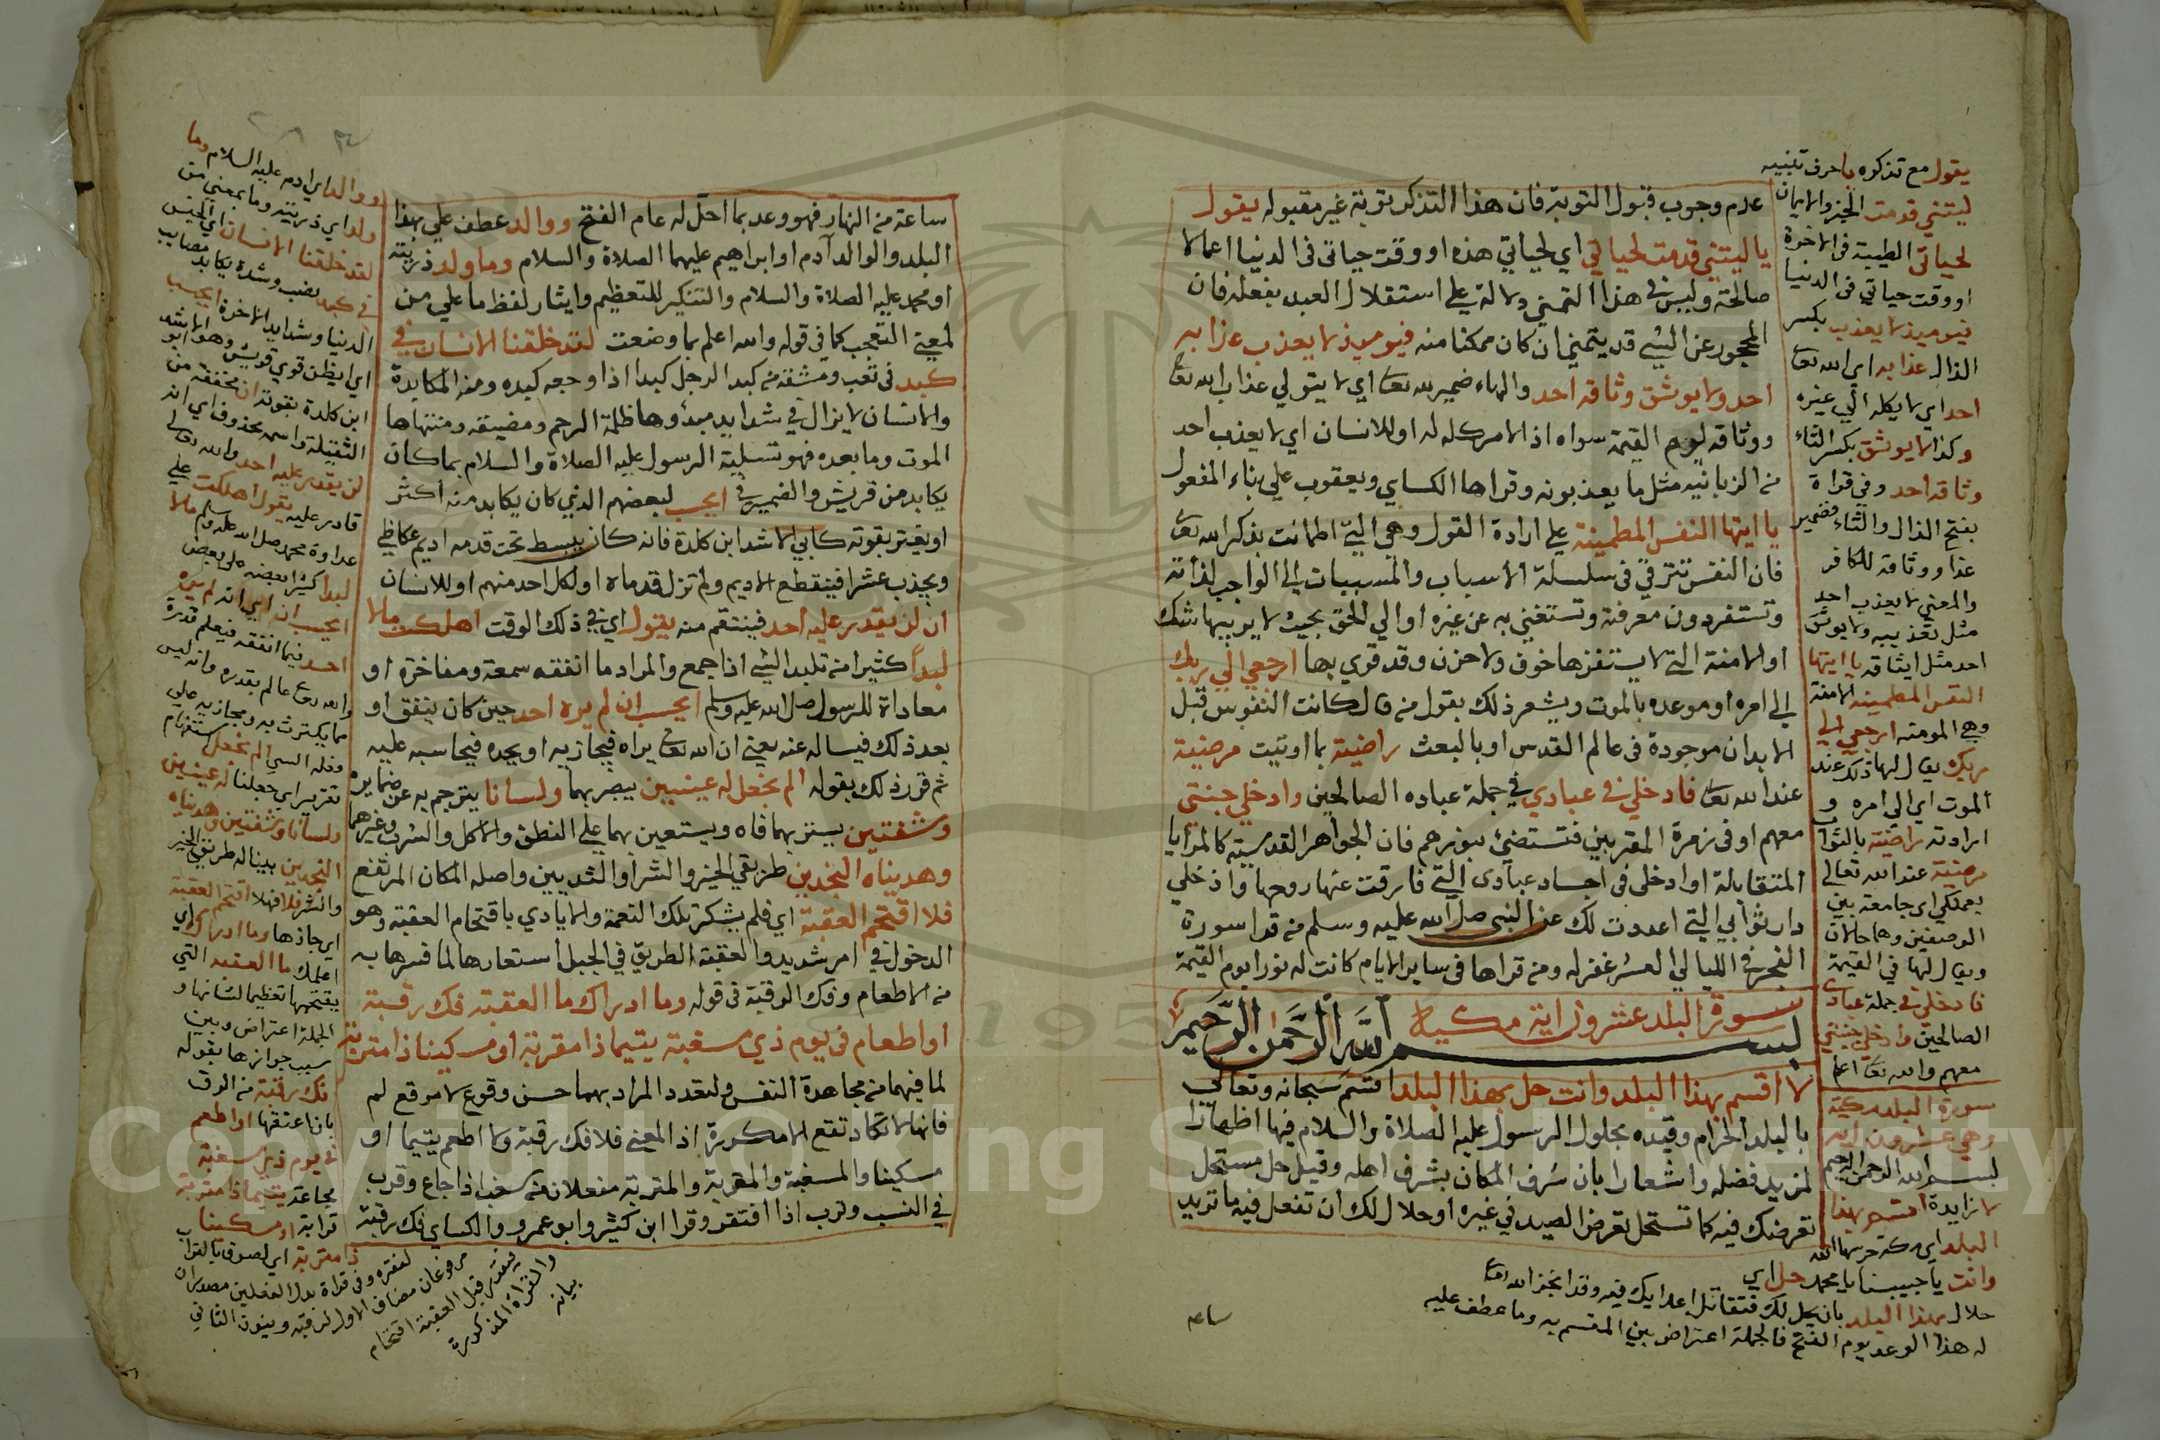 عدم وجوب قبول التوبة فان هذا التذكر توبة غير مقبوله يقول
يا ليتني قدمت لحياتي اي لحياتي هذه او وقت حياتي في الدنيا اعمالا
صالحة وليس في هذا التمني دلالة على استقلال العبد بفعله فان
المحجور عن الشيء قد يتمنى ان كان ممكنا منه فيوميذ لا يعذب عذابه
احد ولا يوثق وثاقه احد والهاء ضمير لله تعا اي لا يتولي عذاب الله تعا
ووثاقه ليوم القيمة سواه اذ الامر كله له او للانسان اي لا يعذب احد
من الزبانيه مثل ما يعذبونه وقراها الكساي ويعقوب علي بناء المفعول
يا ايتها النفس المطمينة علي ارادة القول وهي التي اطمانت بذكر الله تعا
فان النفس تترقي في سلسلة الاسباب والمسببات الي الواجب لذاته
وتستفز دون معرفته وتستغني به عن غيره او الي الحق بحيث لا يريبها شك
او الامنة التي لا يستفزها خوف ولا حزن وقد قري بها ارجعي الي ربك
الي امره او موعده بالموت ويشعر ذلك بقول من قال كانت النفوس قبل
الابدان موجودة في عالم القدس او بالبعث راضية بما اوتيت مرضية
عند الله تعا فادخلي في عبادي في جملة عباده الصالحين وادخلي جنتي
معهم او في زمرة المقربين فتستضئ بنورهم فان الجواهر القدسية كالمرايا
المتقابلة او ادخلي في اجساد عبادى التي فارقت عنها روحها وادخلي
دار ثوابي التي اعددت لك عن النبي صلى الله عليه وسلم من قرا سورة
الفجر في الليالي العشر غفر له ومن قراها في ساير الايام كانت له نورا يوم القيمة
سورة البلد عشرون اية مكية
بسم الله الرحمن الرحيم
لا اقسم بهذا البلد وانت حل بهذا البلد اقسم سبحانه وتعالي
بالبلد الحرام وقيده بحلول الرسول عليه الصلاة والسلام فيها اظهارا
لمزيد فضله واشعارا بان شرف المكان بشرف اهله وقيل حل مستحل
تعرضك فيه كما تستحل تعرض الصيد في غيره او حلال لك ان تفعل فيه ما تريد
ساعه
يقول مع تذكره يا حرف تنبيه
ليتني قدمت الخير والايمان
لحياتي الطيبة في الاخرة
او وقت حياتي في الدنيا
فيوميذ لا يعذب بكسر
الذال عذابه اي الله تعا
احد اي لا يكله الي غيره
وكذا لا يوثق بكسر الثاء
وثاقه احد وفي قراة
بفتح الذال والثاء فضمير
عذابه ووثاقه للكافر
والمعني لا يعذب احد
مثل تعذيبه ولا يوثق
احد مثل ايثاقه يا ايتها
النفس المطمينة الامنة
وهي المومنة ارجعي الي
ربك يقال لها ذلك عند
الموت اي الي امره و
ارادته راضية بالثواب
مرضية عند الله تعالي
بعملك اي جامعة بين
الوصفين وهما حالان
ويقال لها في القيمة
فادخلي في جملة عبادي
الصالحين وادخلي جنتي
معهم والله تعا اعلم
سورة البلد مكية
وهي عشرون اية
بسم الله الرحمن الرحيم
لا زايدة اقسم بهذا
البلد اي مكة حرسها الله
وانت يا حبيبنا يا محمد حل اي
حلال بهذا البلد بان يحل لك فتقاتل اعدايك فيه وقد انجز الله تعا
له هذا الوعد يوم الفتح فالجملة اعتراض بين المقسم به وما عطف عليه
ساعة من النهار فهو وعد بما احل له عام الفتح ووالد عطف علي بهذا
البلد والوالد آدم او ابراهيم عليهما الصلاة والسلام وما ولد ذريته
او محمد عليه الصلاة والسلام والتنكير للتعظيم وايثار لفظ ما علي من
لمعني التعجب كما في قوله والله اعلم بما وضعت لقد خلقنا الانسان في
كبد في تعب ومشقة من كبد الرجل كبدا اذا وجعه كبده ومنه المكابدة
والانسان لا يزال في شدايد مبدؤها ظلمة الرحم ومضيقه ومنتهاها
الموت وما بعده فهو تسلية الرسول عليه الصلاة والسلام بما كان
يكابد من قريش والضمير في ايحسب لبعضهم الذي كان يكابد منه اكثر
او يغتر بقوته كابي الاشد ابن كلدة فانه كان يبسط تحت قدمه اديم عكاظي
ويجذب عشرا فينقطع الاديم ولم تزل قدماه او لكل احد منهم او للانسان
ان لن يقدر عليه احد فينتقم منه يقول اي في ذلك الوقت اهلكت مالا
لبدا كثيرا من تلبد الشيء اذا جمع والمراد ما انفقه سمعة ومفاخرة او
معاداة للرسول صلى الله عليه وسلم ايحسب ان لم يره احد حين كان ينفق او
بعد ذلك فيساله عنه يعني ان الله تعا يراه فيجازيه او يجده فيحاسبه عليه
ثم قرر ذلك بقوله الم نجعل له عينين يبصر بهما ولسانا يترجم به عن ضمايره
وشفتين يستر بهما فاه ويستعين بهما علي النطق والاكل والشرب وغيرهما
وهديناه النجدين طريقي الخير والشر او الثديين واصله المكان المرتفع
فلا اقتحم العقبة اي فلم يشكر تلك النعمة والايادي باقتحام العقبة وهو
الدخول في امر شديد والعقبة الطريق في الجبل استعارها لما فسرها به
من الاطعام وفك الرقبة في قوله وما ادراك ما العقبة فك رقبة
او اطعام في يوم ذي مسغبة يتيما ذا مقربة او مسكينا ذا متربة
لما فيهما من مجاهدة النفس ولتعدد المراد بهما حسن وقوع لا موقع لم
فانها لا تكاد تقع الا مكررة اذ المعني فلا فك رقبة ولا اطعم يتيما او
مسكينا والمسغبة والمقربة والمتربة مفعلات من سغب اذا جاع وقرب
في النسب وترب اذا افتقر وقرا ابن كثير وابو عمرو والكساي فك رقبة
ووالد اي ادم عليه السلام وما
ولد اي ذريته وما بمعني من
لقد خلقنا الانسان اي الجنس
في كبد نصب وشدة يكابد مصايب
الدنيا وشدايد الاخرة ايحسب
اي ايظن قوي قريش وهو ابو الاشد
ابن كلدة بقوته ان مخففة من
الثقيلة واسمه محذوف اي انه
لن يقدر عليه احد والله تعا
قادر عليه يقول اهلكت علي
عداوة محمد صلى الله عليه وسلم مالا
لبدا كثيرا بعضه على بعض
ايحسب ان اي انه لم يره
احد فيما انفقه فيعلم قدره
والله تعا عالم بقدره وانه ليس
مما يتكثر به ومجازيه علي
فعله السيء الم نجعل استفهام
تقرير اي جعلنا له عينين
ولسانا وشفتين وهديناه
النجدين بينا له طريقي الخير
والشر فلا فهلا اقتحم العقبة
اي جاوزها وما ادراك اي
اعلمك ما العقبة التي
يقتحمها تعظيما لشانها و
الجملة اعتراض وبين
سبب جوازها بقوله
فك رقبة من الرق
بان اعتقها او اطعم
في يوم ذي مسغبة
مجاعة يتيما ذا مقربة
قرابة او مسكينا
ذا متربة اي لصوق بالتراب
لفقره وفي قراة بدل الفعلين مصدران
مرفوعان مضاف الاول لرقبة وينون الثاني
فيقدر قبل العقبة اقتحام
والقراة المذكورة
بيانه